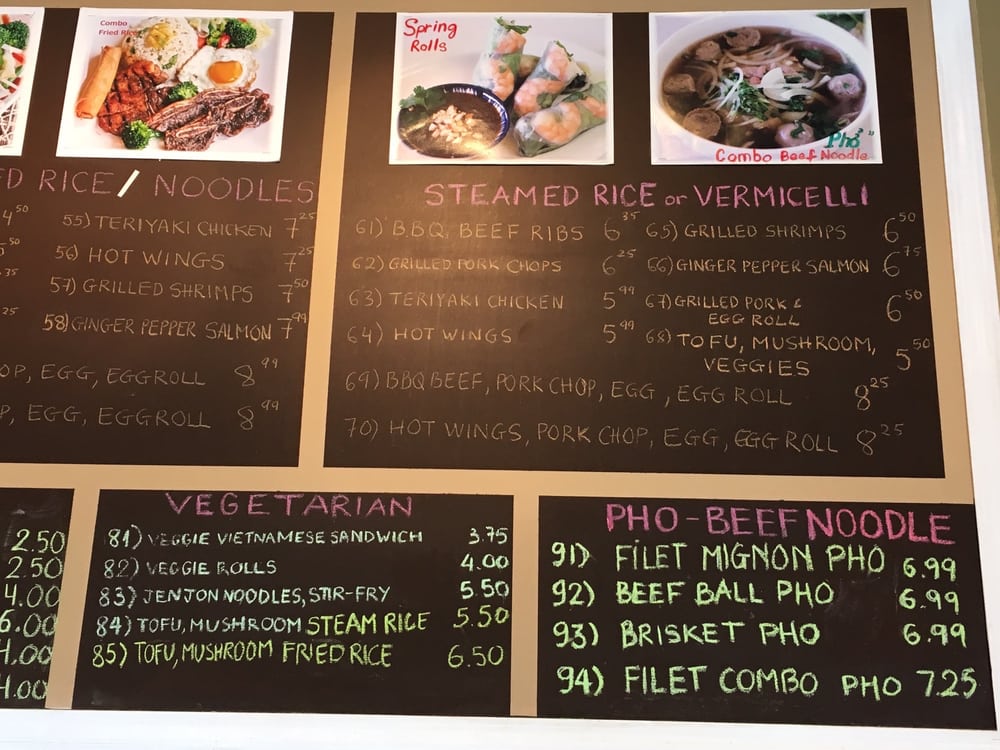 Combo
Fried Rice
Spring
Rolls
Pho
Combo Beef Noodle
ED RICE / NOODLES
4.50
55) TERIYAKI CHICKEN 7.25
56) HOT WINGS 7.25
57) GRILLED SHRIMPS 7.50
58) GINGER PEPPER SALMON 7.99
OP, EGG, EGGROLL 8.99
P, EGG, EGGROLL 8.99
STEAMED RICE or VERMICELLI
61) B.B.Q. BEEF RIBS 6.35
62) GRILLED PORK CHOPS 6.25
63) TERIYAKI CHICKEN 5.99
64) HOT WINGS 5.99
65) GRILLED SHRIMPS 6.50
66) GINGER PEPPER SALMON 6.75
67) GRILLED PORK &
EGG ROLL 6.50
68) TOFU, MUSHROOM,
VEGGIES 5.50
69) BBQ BEEF, PORK CHOP, EGG, EGG ROLL 8.25
70) HOT WINGS, PORK CHOP, EGG, EGG ROLL 8.25
2.50
2.50
4.00
6.00
4.00
4.00
VEGETARIAN
81) VEGGIE VIETNAMESE SANDWICH 3.75
82) VEGGIE ROLLS 4.00
83) JENJON NOODLES, STIR-FRY 5.50
84) TOFU, MUSHROOM STEAM RICE 5.50
85) TOFU, MUSHROOM FRIED RICE 6.50
PHO - BEEF NOODLE
91) FILET MIGNON PHO 6.99
92) BEEF BALL PHO 6.99
93) BRISKET PHO 6.99
94) FILET COMBO PHO 7.25